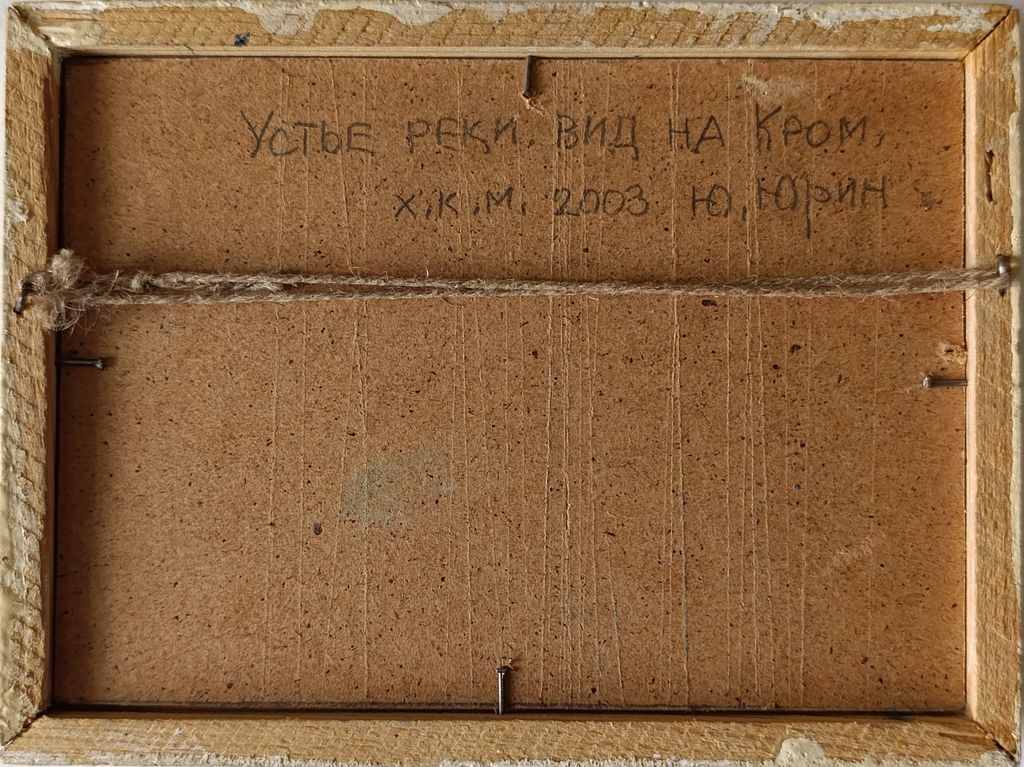 Устье реки. вид на Кром.
х.к.м. 2003 Ю. Юрин